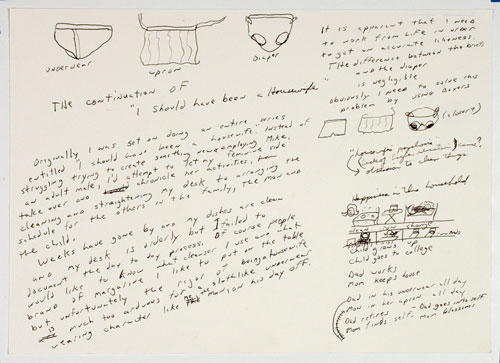 underwear
apron
Diaper
THE continuation OF
"I should have been a Housewife"
Originally I was set on doing an entire series
entitled "I should have been a housewife." Instead of
struggling trying to create something new employing Mike,
an adult male, I'd attempt to let my feminine side
take over and chronicle her activities, from
cleaning and straightening my desk to arranging the
schedule for the others in the family, the man and
the child.
Weeks have gone by and my dishes are clean
and my desk is orderly but I failed to
document the day to day process. Of course people
would like to know what cleanser I use and what
brand of margarine I like to put on the table
but unfortunately the rigor of being a housewife
is much too arduous for a slothlike underwear
wearing character like man on his day off.
It is apparent that I need
to work from life in order
to get an accurate likeness
The difference between the briefs
and the diaper
is negligible
obviously I need to solve this
problem by using Boxers
(closer)
"housewife
to clean things
Happiness in this household
clean
child grows up
child goes to college
Dad works
Mom keeps house
Dad in his underwear all day
Mom in her apron all day
Dad retires - Dad goes into self
Mom finds self. Mom blossoms